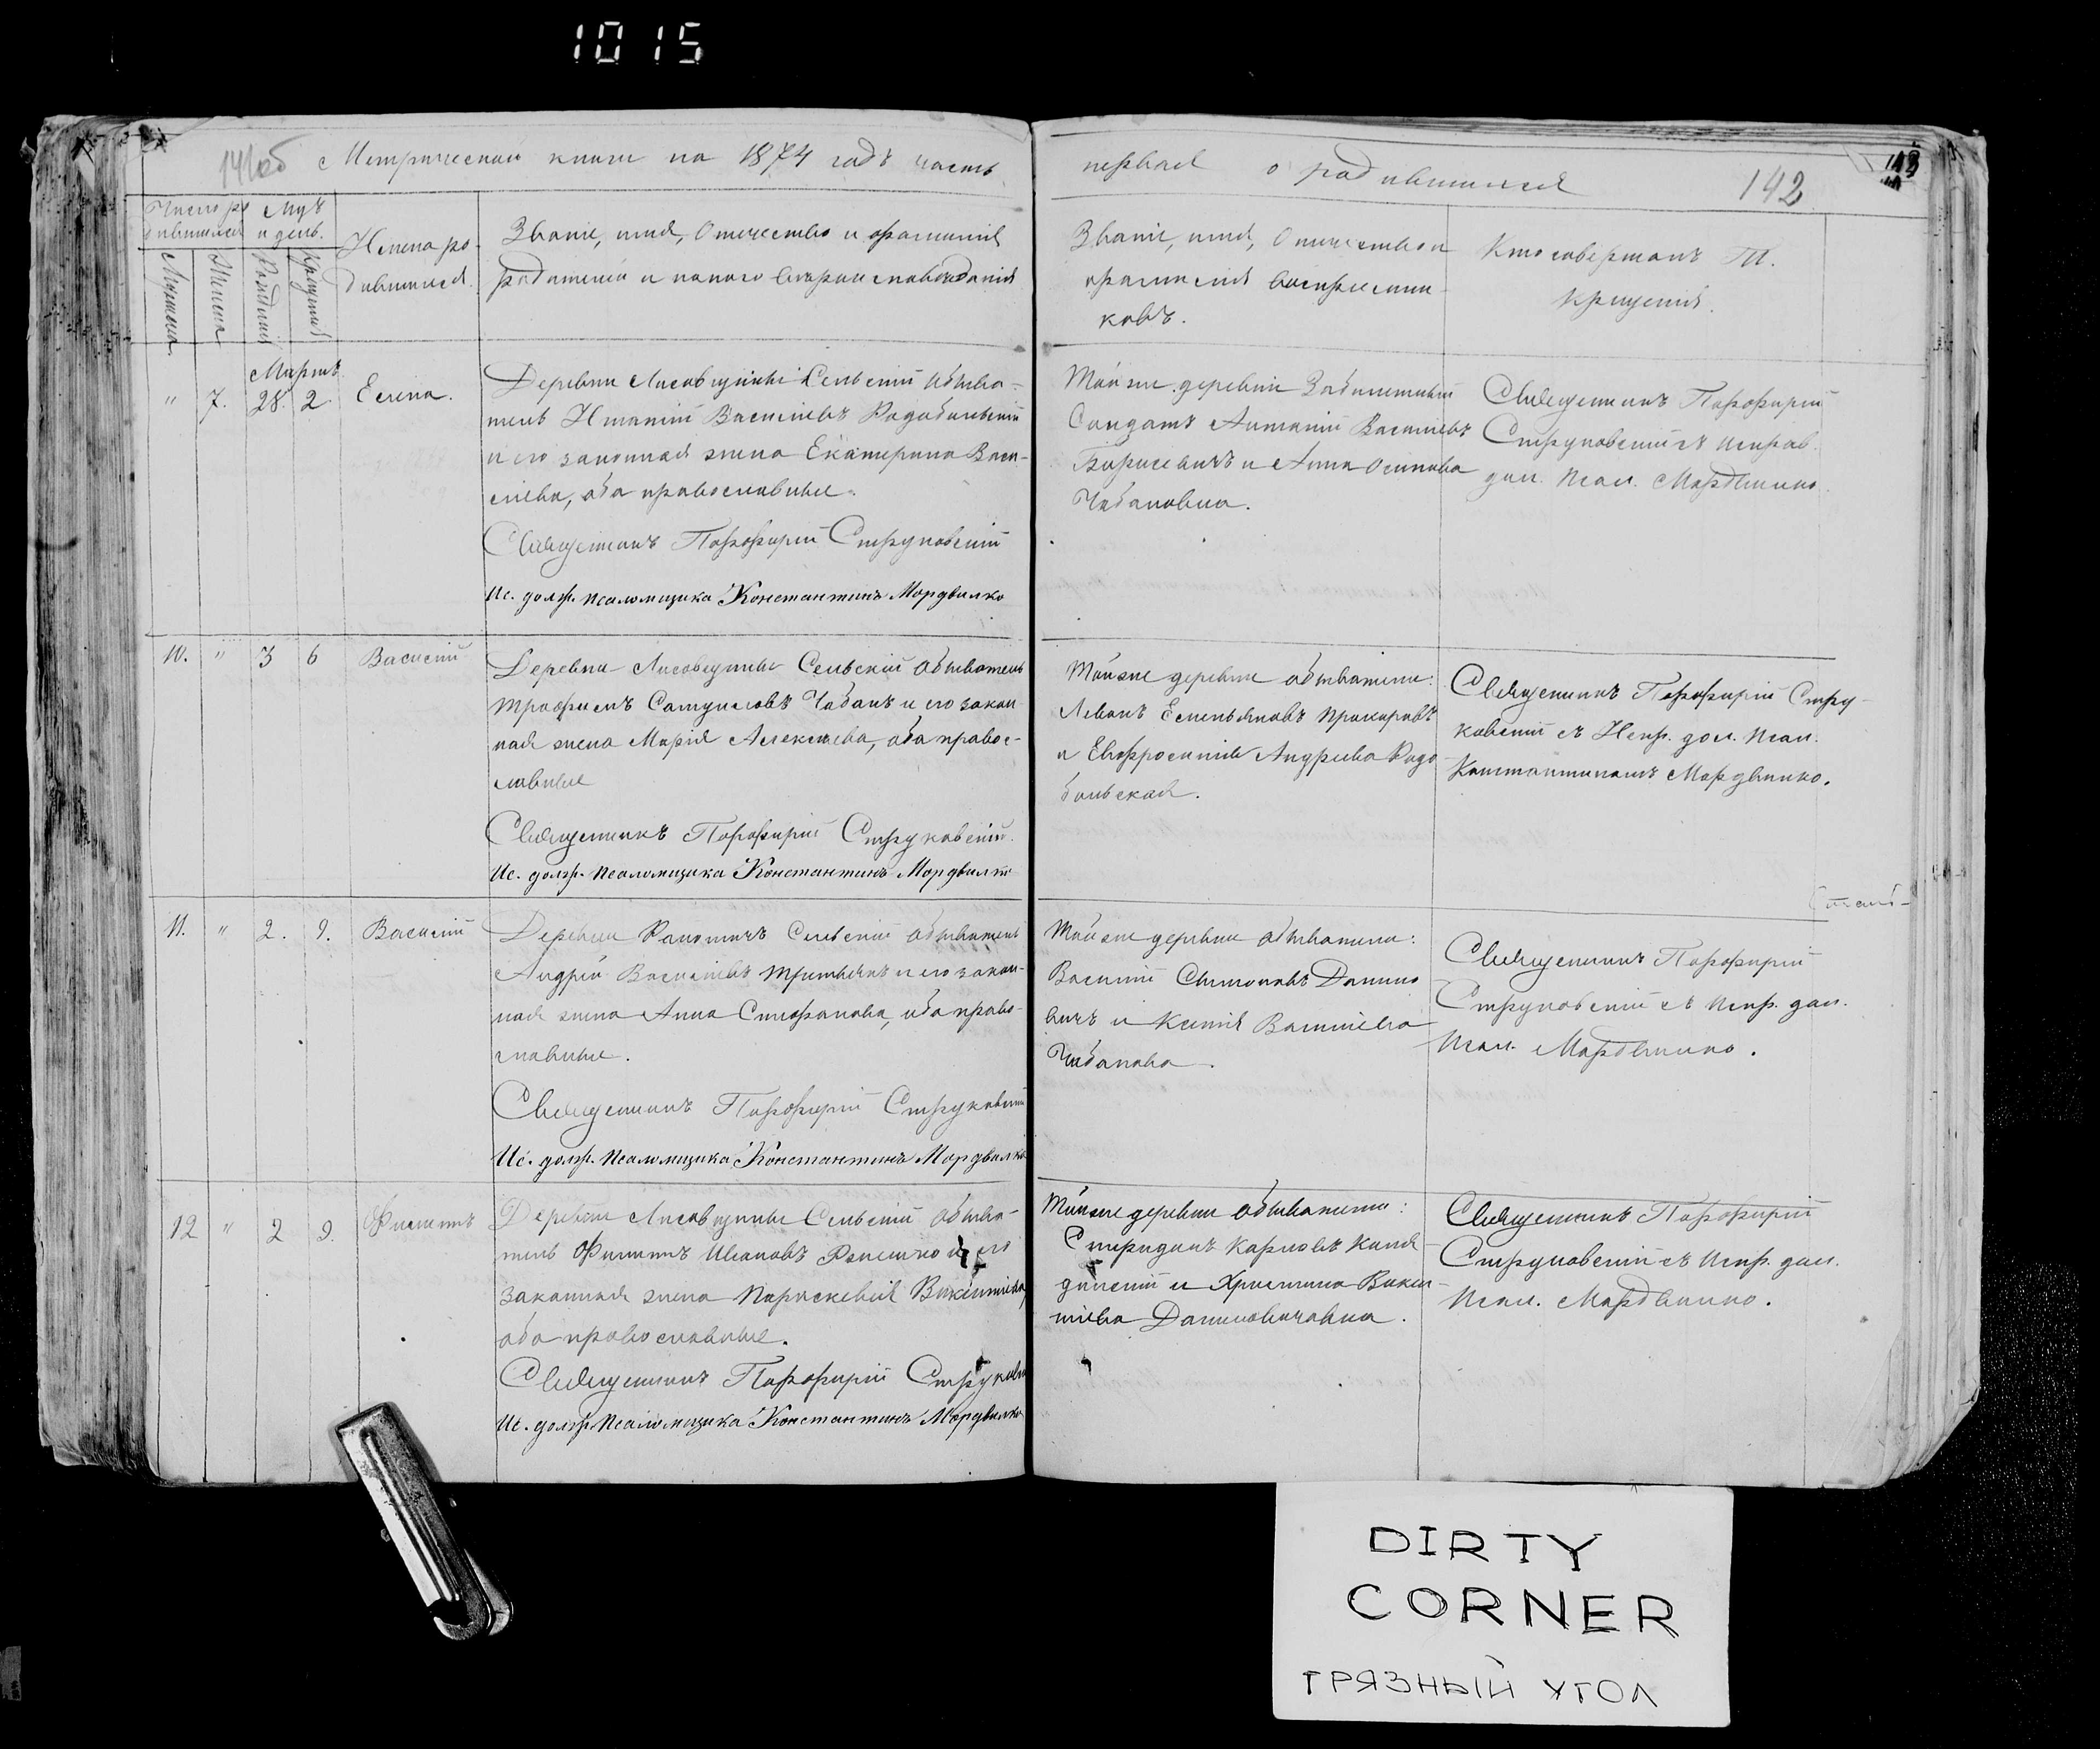 1015
141об Метрической книги на 1874 годъ часть
первая о родившихся 142
Число ро
дившихся
Мужеска
Женска
Мцъ
и день.
Рожденія
Крещенія
Имена ро-
дившихся.
Званіе, имя, Отчество и фамилія
родителей и какого вѣроисповѣданія
Званіе, имя, Отчество и
фамилія воспріемни-
ковъ.
Кто совершалъ Т.
крещенія.
Мартъ
" 7. 28. 2. Елена.
Деревни Лисовщины Сельскій обыва-
тель Игнатій Васильевъ Радобольскій
и его законная жена Екатерина Васи-
лiева, оба православные.
Священникъ Порфирій Струковскій
Ис. долж. Псаломщика Константинъ Мордвилко
Той же деревни Забилетный
Солдатъ Антоній Васильевъ
Борисевичъ и Анна Осипова
Чабановна.
Священникъ Порфирій
Струковскій съ исправ.
дол. Псал. Мордвилко.
10. " 3 6 Василій
Деревни Лисовщины Сельскій обыватель
Трофимъ Самуиловъ Чабанъ и его закон-
ная жена Марія Алексѣева, оба правос-
лавные
Священникъ Порфирій Струковскій.
Ис. долж. Псаломщика Константинъ Мордвилко
Той же деревни обыватели:
Леванъ Емельяновъ
и Евфросинія Андреева Радо
больская.
Священникъ Порфирій Стру-
ковскій съ Испр. дол. Псал.
Константиномъ Мордвилко.
11. " 2. 9. Василій
Деревни Сельскій обыватель
Андрей Васильевъ Третьякъ и его закон-
ная жена Анна Стефанова, оба право-
славные.
Священникъ Порфирій Струковскій
Ис. долж. Псаломщика Константинъ Мордвилко
Той же деревни обыватели:
Василій Симоновъ Данило
вичъ и Ксенія Васильева
Чабанова.
Священникъ Порфирій
Струковскій съ Испр. дол.
Псал. Мордвилко.
12 " 2 9. Филиппъ
Деревни Лисовщины Сельскій обыва-
тель Филиппъ Ивановъ и его
законная жена Параскевія Викентіева,
оба православные.
Священникъ Порфирій Струковскій
Ис. долж. Псаломщика Константинъ Мордвилко
Той же деревни обыватели:
Спиридонъ Карповъ
и Христина Викен-
тіева Даниловичовна.
Священникъ Порфирій
Струковскій съ Испр. дол.
Псал. Мордвилко.
DIRTY
CORNER
ГРЯЗНЫЙ УГОЛ